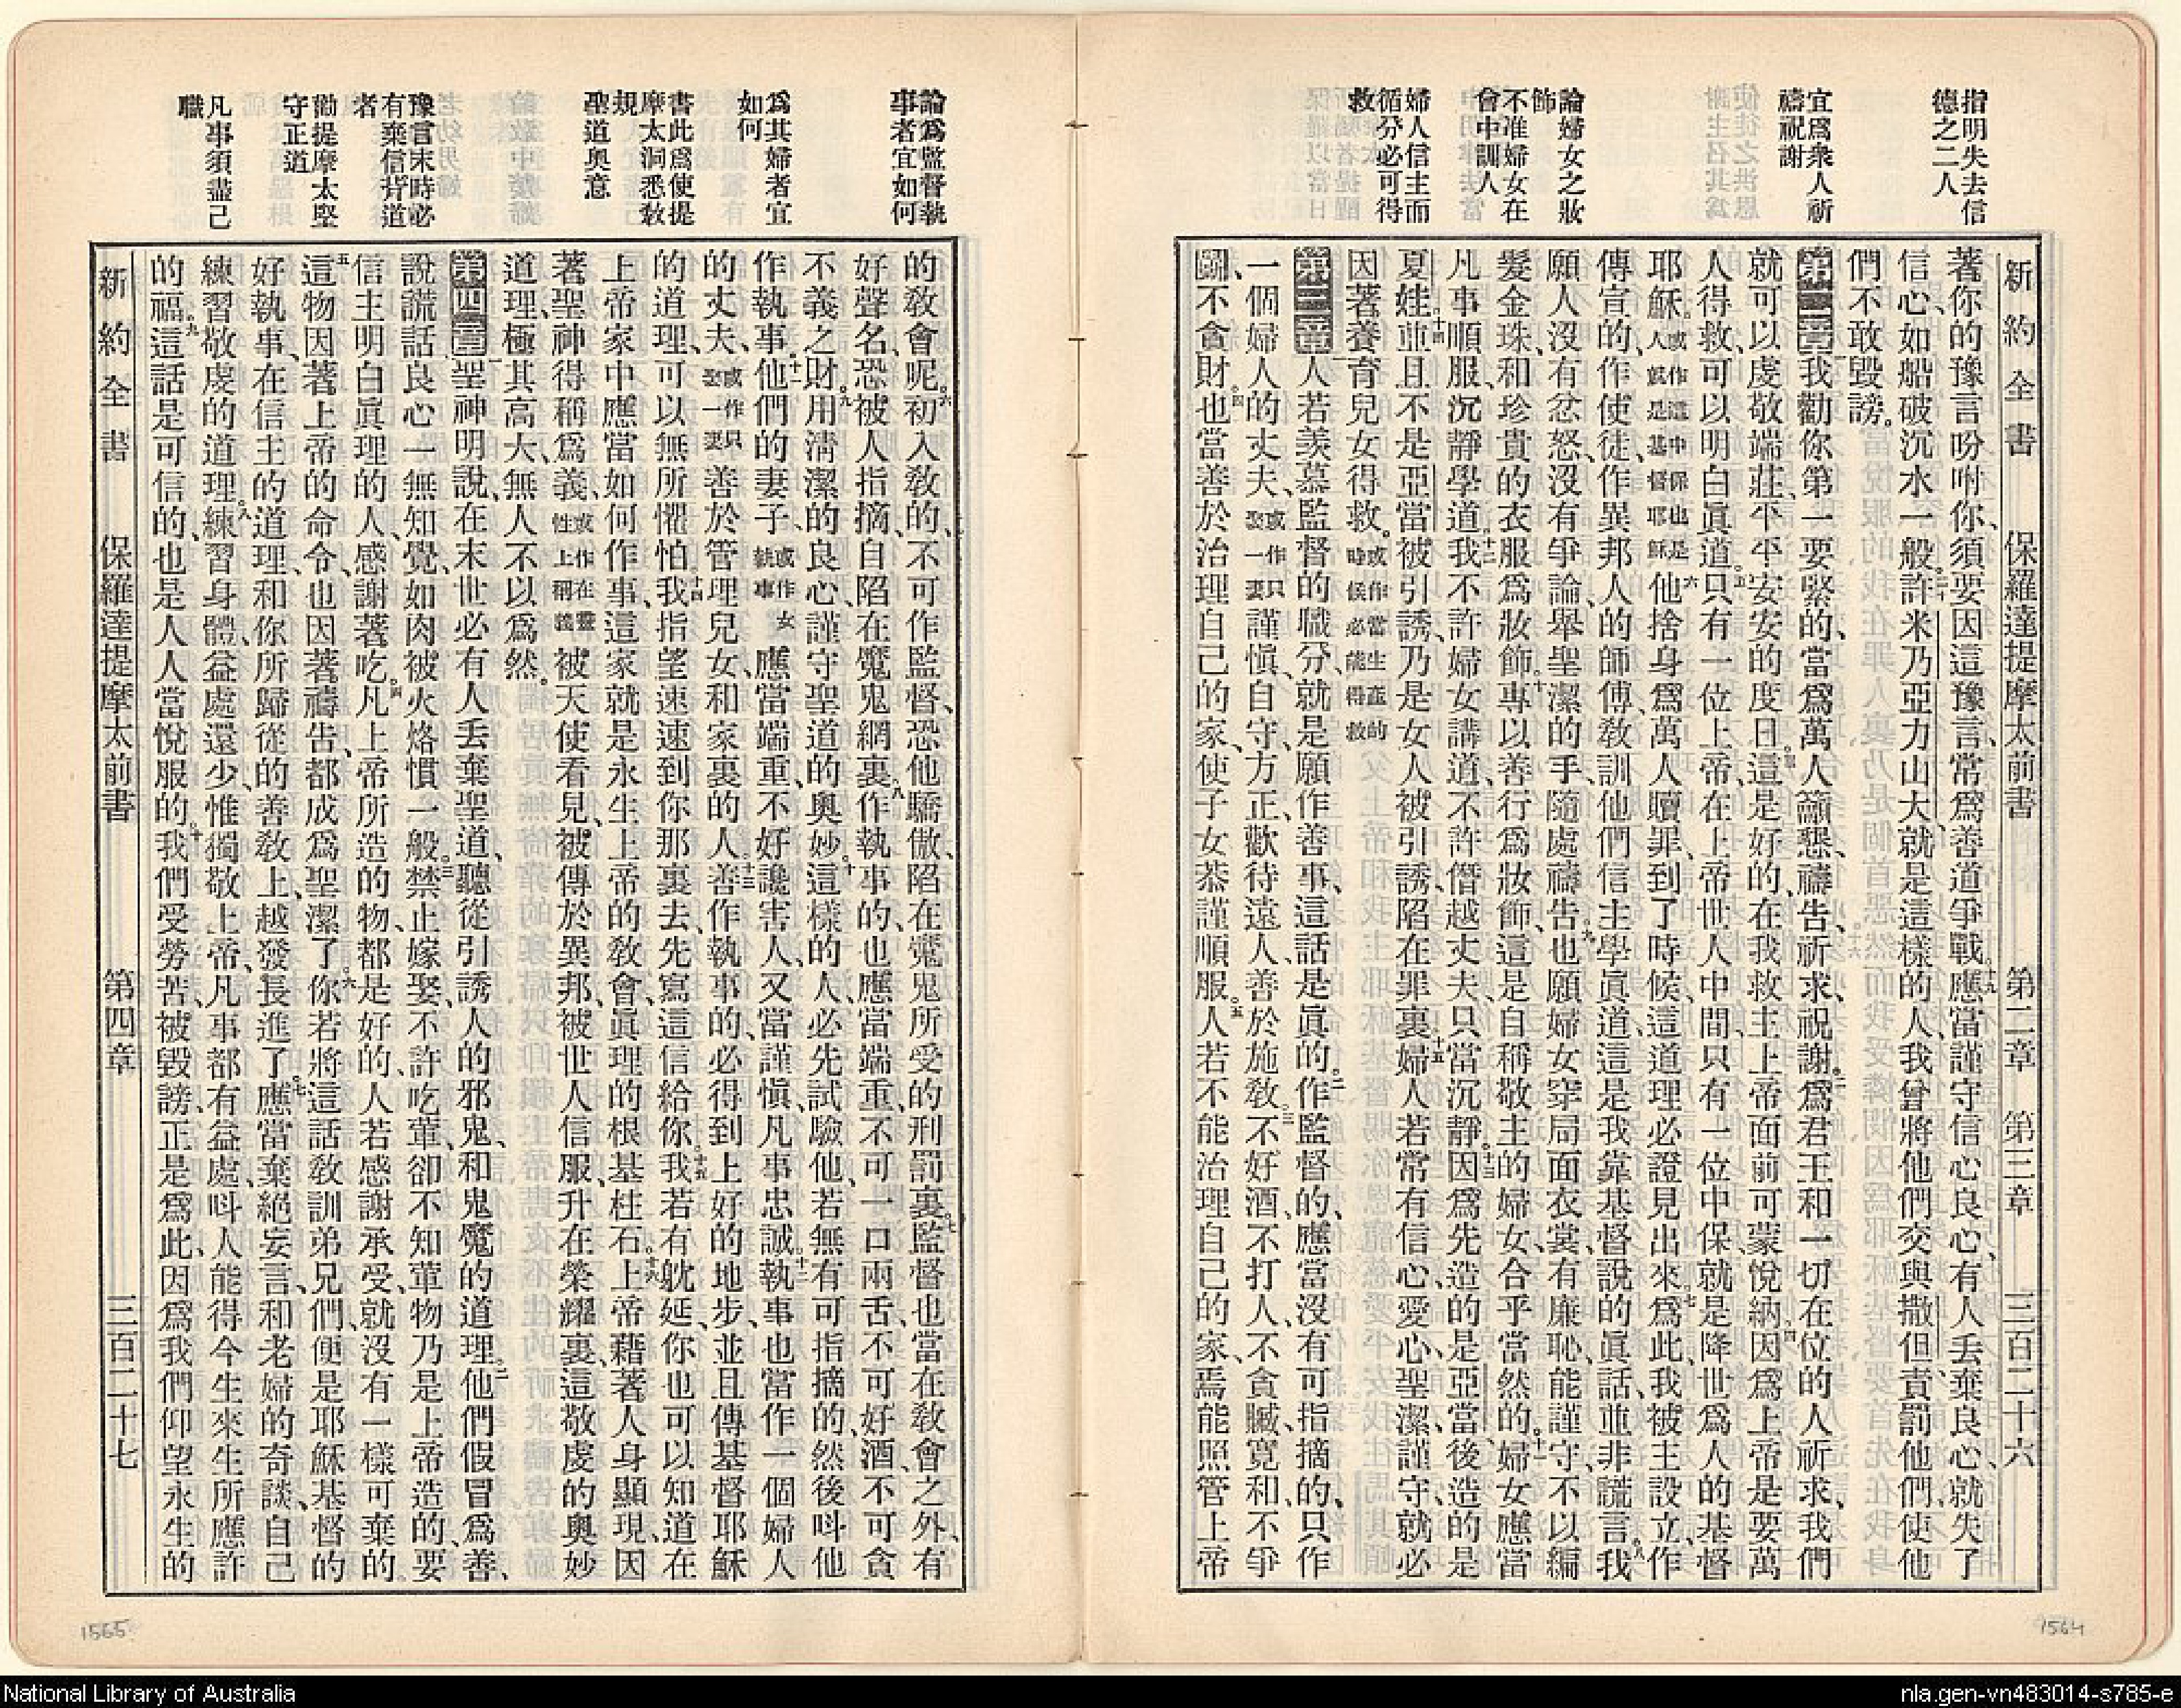 指明失去信
德之二人
宜爲衆人祈
禱祝謝
論婦女之妝
飾
不准婦女在
會中訓人
婦人信主而
循分必可得
救
新約全書 保羅達提摩太前書 第二章 第三章 三百二十六
著你的豫言吩咐你、須要因這豫言、常爲善道爭戰。十九應當謹守信心良心、有人丟棄良心、就失了
信心、如船破沉水一般。二十許米乃亞力山大、就是這樣的人、我曾將他們交與撒但、責罰他們、使他
們不敢毀謗。
第二章 一我勸你第一要緊的、當爲萬人籲懇、禱告、祈求、祝謝。二爲君王和一切在位的人祈求、我們
就可以虔敬端莊、平平安安的度日。三這是好的、在我救主上帝面前、可蒙悅納。四因爲上帝是要萬
人得救、可以明白眞道。五只有一位上帝、在上帝世人中間、只有一位中保、就是降世爲人的基督
耶穌。或作這中保也是人就是基督耶穌六他捨身爲萬人贖罪、到了時候、這道理必證見出來。七爲此我被主設立、作
傳宣的、作使徒、作異邦人的師傅、敎訓他們信主學眞道、這是我靠基督說的眞話、並非謊言。八我
願人沒有忿怒、沒有爭論、舉聖潔的手、隨處禱告。九也願婦女穿局面衣裳、有廉恥、能謹守、不以編
髮金珠、和珍貴的衣服爲妝飾。十專以善行爲妝飾、這是自稱敬主的婦女、合乎當然的。十一婦女應當
凡事順服、沉靜學道。十二我不許婦女講道、不許僭越丈夫、只當沉靜。十三因爲先造的是亞當、後造的是
夏娃。十四並且不是亞當被引誘、乃是女人被引誘、陷在罪裏。十五婦人若常有信心、愛心、聖潔、謹守、就必
因著養育兒女得救。或作當生產的時候必能得救
第三章 一人若羨慕監督的職分、就是願作善事、這話是眞的。二作監督的、應當沒有可指摘的、只作
一個婦人的丈夫、或作只娶一妻謹愼、自守、方正、歡待遠人、善於施敎。三不好酒、不打人、不貪贓、寬和、不爭
鬭、不貪財。四也當善於治理自己的家、使子女恭謹順服。五人若不能治理自己的家、焉能照管上帝
論爲監督執
事者宜如何
爲其婦者宜
如何
書此爲使提
摩太洞悉敎
規
聖道奧意
豫言末時必
有棄信背道
者
勸提摩太堅
守正道
凡事須盡己
職
的敎會呢。六初入敎的、不可作監督、恐他驕傲、陷在魔鬼所受的刑罰裏。七監督也當在敎會之外、有
好聲名、恐被人指摘、自陷在魔鬼網裏。八作執事的、也應當端重、不可一口兩舌、不可好酒、不可貪
不義之財。九用淸潔的良心、謹守聖道的奧妙。十這樣的人、必先試驗他、若無有可指摘的、然後呌他
作執事。十一他們的妻子、或作女執事應當端重、不好讒害人、又當謹愼、凡事忠誠。十二執事也當作一個婦人
的丈夫、或作只娶一妻善於管理兒女、和家裏的人。十三善作執事的、必得到上好的地步、並且傳基督耶穌
的道理、可以無所懼怕。十四我指望速速到你那裏去、先寫這信給你。十五我若有躭延、你也可以知道在
上帝家中、應當如何作事、這家就是永生上帝的敎會、眞理的根基柱石。十六上帝藉著人身顯現、因
著聖神得稱爲義、或作在靈性上稱義被天使看見、被傳於異邦、被世人信服、升在榮耀裏、這敬虔的奧妙
道理、極其高大、無人不以爲然。
第四章 一聖神明說、在末世必有人丟棄聖道、聽從引誘人的邪鬼、和鬼魔的道理。二他們假冒爲善、
說謊話、良心一無知覺、如肉被火烙慣一般。三禁止嫁娶、不許吃葷、卻不知葷物乃是上帝造的、要
信主明白眞理的人、感謝著吃。四凡上帝所造的物、都是好的、人若感謝承受、就沒有一樣可棄的。
五這物因著上帝的命令、也因著禱告、都成爲聖潔了。六你若將這話敎訓弟兄們、便是耶穌基督的
好執事、在信主的道理、和你所歸從的善敎上、越發長進了。七應當棄絕妄言、和老婦的奇談、自己
練習敬虔的道理。八練習身體、益處還少、惟獨敬上帝、凡事都有益處、呌人能得今生來生所應許
的福。九這話是可信的、也是人人當悅服的。十我們受勞苦、被毀謗、正是爲此、因爲我們仰望永生的
新約全書 保羅達提摩太前書 第四章 三百二十七
1565
1564
National Library of Australia
nla.gen-vn483014-s785-e